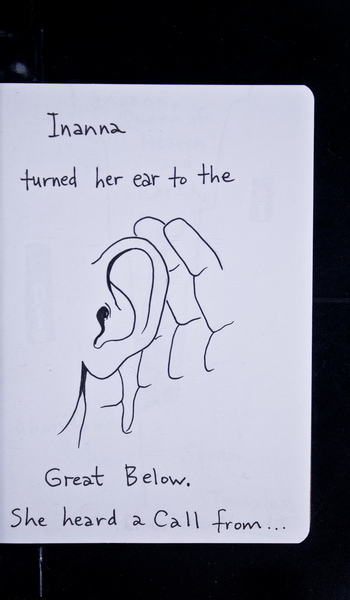 Inanna
turned her ear to the
Great Below.
She heard a Call from...